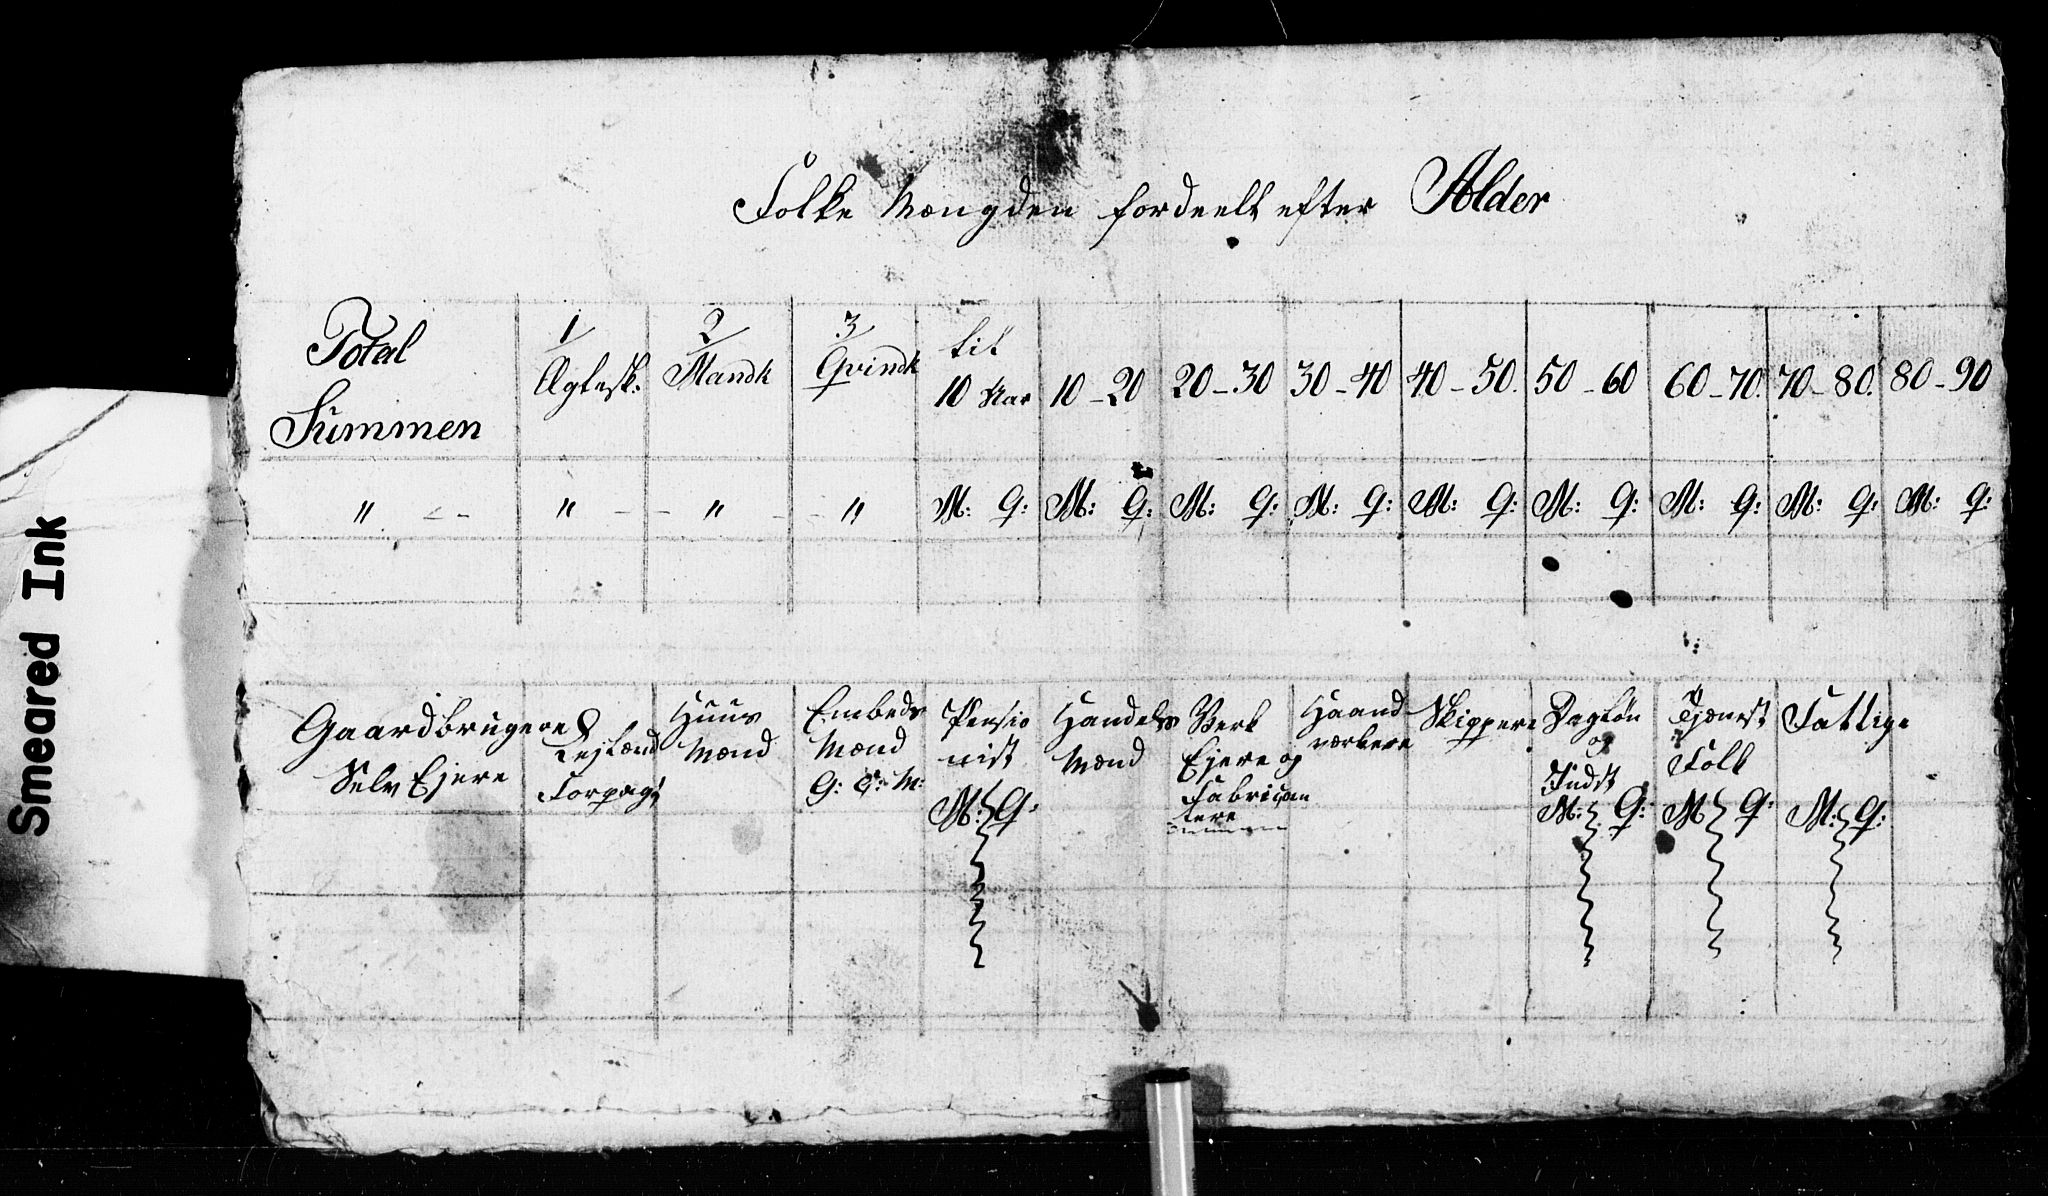 Folke Mængden fordeelt efter Alder
Total Summen
1 Ægtesk:
2 Mandk
3 Qvindk
til 10 Aar
10 - 20
20 - 30
30 - 40
40 - 50.
50 - 60
60 - 70.
70 - 80.
80 - 90
" - - " - - " - - " M: Q: M: Q: M: Q: M: Q: M: Q: M: Q: M: Q: M: Q: M: Q:
Gaardbrugere
Selv Ejere
Forpag:
Huus
Mænd
Embeds
Mænd
G: C: M:
Pensio
nist
M: Q:
Handels
Mænd
Verk
Ejere og
Fabrican
tere
Haand
værkere
Skippere
Dagløn
og
Indst
M: Q:
Tjenest
Folk
M: Q:
Fattige
M: Q:
Smeared Ink